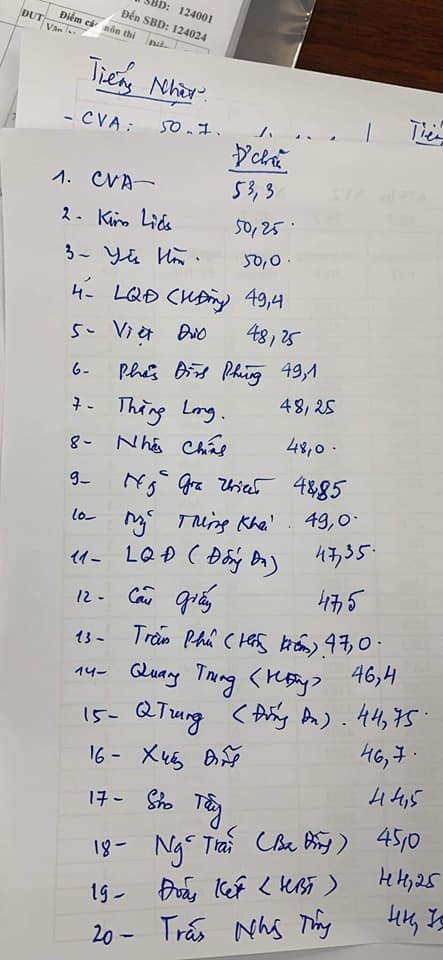 SBD: 124001
Đến SBD: 124024
ĐƯT Điểm các môn thi
Tiếng Nhật.
- CVA: 50.7.
Đ chuẩn
1. CVA — 53,3
2- Kim Liên 50,25.
3- Yên Hòa. 50,0.
4- LQĐ (HĐông) 49,4
5- Việt Đức 48,25
6- Phan Đình Phùng 49,1
7- Thăng Long. 48,25
8- Nhân Chính 48,0.
9- Ng~ Gia Thiều 48,85
10- Ng~ Thị Minh Khai. 49,0.
11- LQĐ (Đống Đa) 47,35.
12- Cầu Giấy 47,5
13- Trần Phú (Hoàn Kiếm) 47,0.
14- Quang Trung (HĐông) 46,4
15- QTrung (Đống Đa). 44,75.
16- Xuân Đỉnh 46,7.
17- Sơn Tây 44,5
18- Ng~ Trãi (Ba Đình) 45,0
19- Đoàn Kết (HBT) 44,25
20- Trần Nhân Tông 44,75